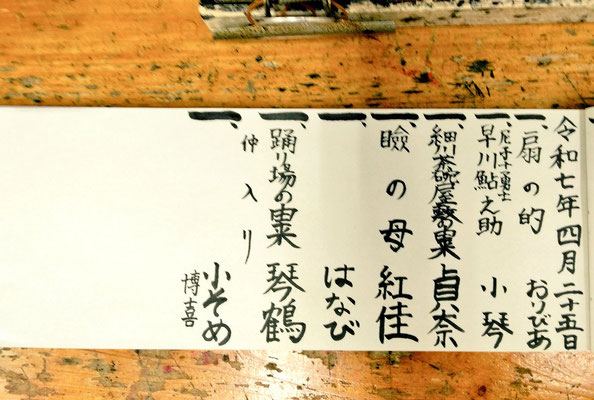 令和七年四月二十五日
一、扇の的 おりびあ
一、尼子十勇士
早川鮎之助 小琴
一、細川茶碗屋敷の由来 貞奈
一、瞼の母 紅佳
一、 はなび
一、踊り場の由来 琴鶴
仲入り
一、 小そめ
博喜